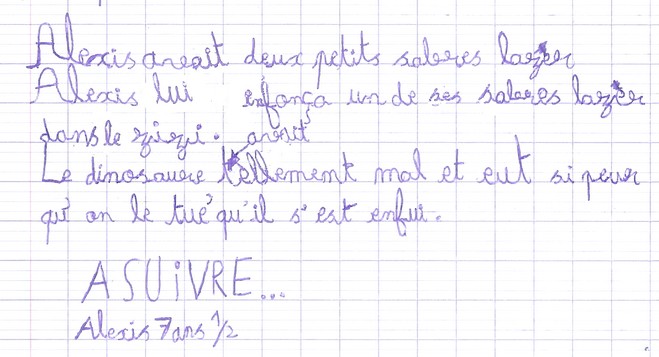 Alexis avait deux petits sabres lazer
Alexis lui enfonça un de ses sabres lazer
dans le zizi. avait
Le dinosaure tellement mal et eut si peur
qu'on le tue qu'il s'est enfui.
A SUiVRE...
Alexis 7ans 1/2